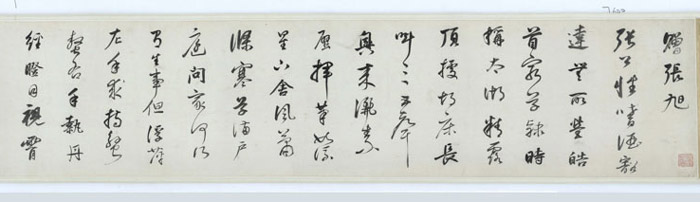 贈張旭
張公性嗜酒豁
達無所營皓
首窮草隸時
稱太湖精露
頂據胡床長
叫三五聲
興來灑素
壁揮筆如流
星下舍風蕭
條寒草滿戶
庭問家何所
有生事但浮萍
左手持蟹
螯右手執丹
經瞪目視霄